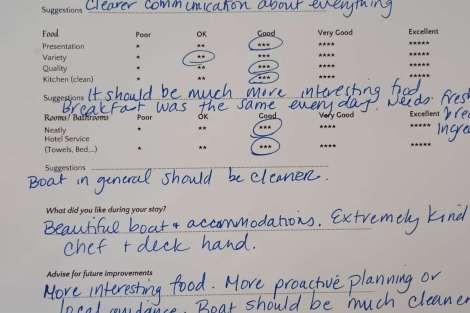 Suggestions Clearer communication about everything
Food Poor OK Good Very Good Excellent
Presentation * ** *** **** *****
Variety * ** *** **** *****
Quality * ** *** **** *****
Kitchen (clean) * ** *** **** *****
Suggestions It should be much more interesting food
Breakfast was the same every day. Needo fresh
Rooms/ Bathrooms Poor OK Good Very Good Excellent
Neatly * ** *** **** *****
Hotel Service
(Towels, Bed...) * ** *** **** *****
Suggestions
Boat in general should be cleaner.
What did you like during your stay?
Beautiful boat + accommodations. Extremely kind
chef + deck hand.
Advise for future improvements
More interesting food. More proactive planning or
local guidance. Boat should be much cleaner